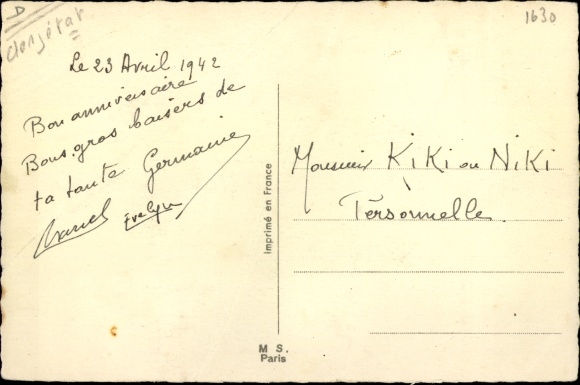 D
1630
Le 23 Avril 1942
Bon anniversaire
Bons gros baisers de
ta tante Germaine
Marcel Evelyne
Monsieur KiKi ou NiKi
Personnelle
Imprimé en France
M S.
Paris